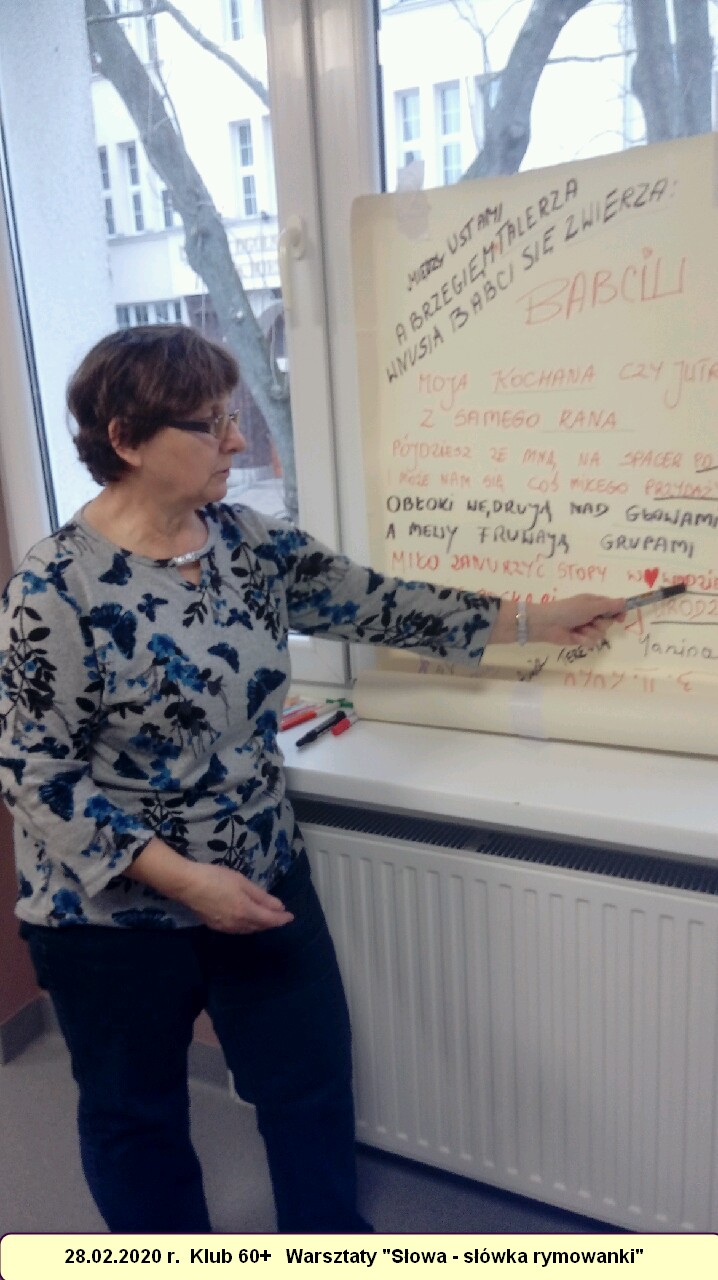 MIĘDZY USTAMI
A BRZEGIEM TALERZA
WNUSIA BABCI SIĘ ZWIERZA:
BABCIU
MOJA KOCHANA CZY JUTR
Z SAMEGO RANA
PÓJDZIESZ ZE MNĄ NA SPACER PO
I MOŻE NAM SIĘ COŚ MIŁEGO PRZYDAŻ
OBŁOKI WĘDRUJĄ NAD GŁOWAMI
A MEWY FRUWAJĄ GRUPAMI
MIŁO ZANURZYĆ STOPY W WODZIE
Janina
28.02.2020 r. Klub 60+ Warsztaty "Slowa - slówka rymowanki"